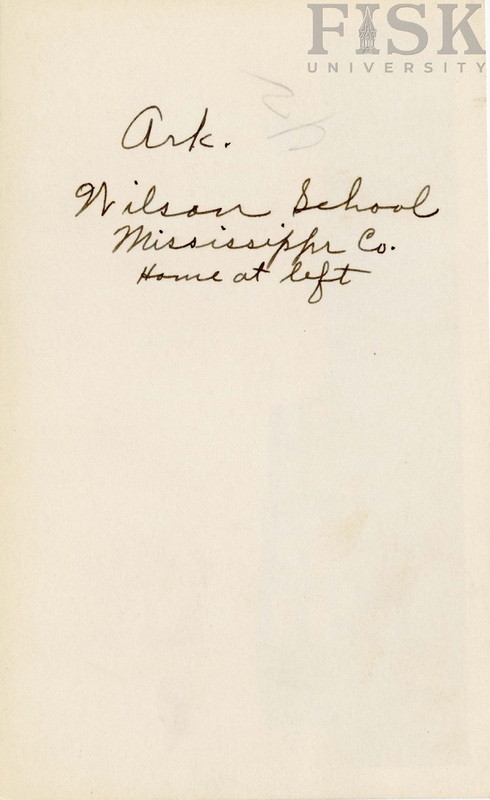 FISK
UNIVERSITY
Ark.
Wilson School
Mississippi Co.
Home at left